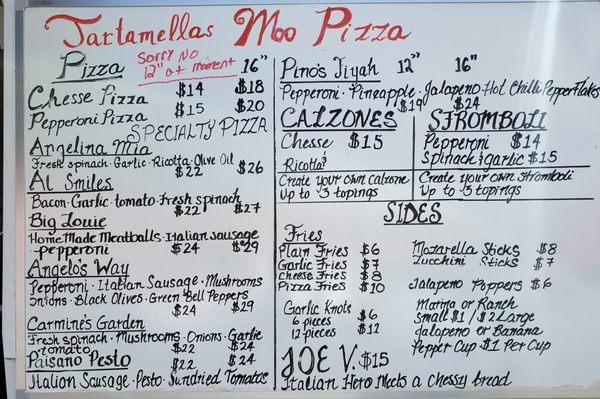 Tartamellas Moo Pizza
Pizza
Sorry No
12" at moment
16"
Chesse Pizza $14 $18
Pepperoni Pizza $15 $20
SPECIALTY PIZZA
Angelina Mia
Fresh spinach · Garlic · Ricotta · Olive Oil
$22 $26
Al Smiles
Bacon · Garlic · tomato · Fresh spinach
$22 $27
Big Louie
Home Made Meatballs · Italian sausage
-pepperoni $24 $29
Angelo's Way
Pepperoni · Italian Sausage · Mushrooms
Onions · Black Olives · Green Bell Peppers
$24 $29
Carmine's Garden
Fresh spinach · Mushrooms · Onions · Garlic
tomato $22 $24
Paisano Pesto $22 $24
Italian Sausage · Pesto · Sundried Tomatos
Pino's Fiyah 12" 16"
Pepperoni · Pineapple · Jalapeno · Hot Chilli Pepper Flakes
$19 $24
CALZONES
Chesse $15
Ricotta
Create your own calzone
Up to 3 topings
STROMBOLI
Pepperoni $14
Spinach & garlic $15
Create your own stromboli
Up to 3 topings
SIDES
Fries
Plain Fries $6
Garlic Fries $7
Cheese Fries $8
Pizza Fries $10
Garlic Knots
6 pieces $6
12 pieces $12
Mozarella Sticks $8
Zucchini Sticks $7
Jalapeno Poppers $6
Marina or Ranch
Small $1 / $2 Large
Jalapeno or Banana
Pepper Cup $1 Per Cup
JOE V. $15
Italian Hero Meets a cheesy bread